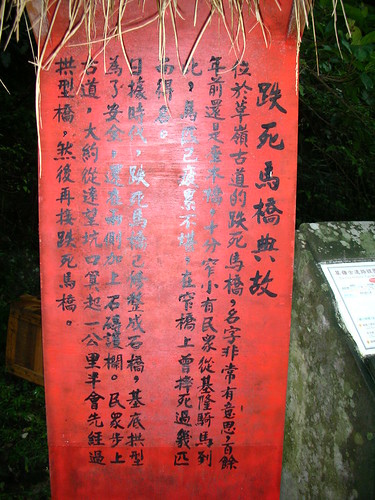 跌死馬橋典故
位於草嶺古道的跌死馬橋，名字非常有意思，百餘
年前還是座木橋，十分窄小有民眾從基隆騎馬到
此，馬匹已疲累不堪，在窄橋上曾摔死過幾匹
而得名。
日據時代，跌死馬橋已修整成石橋，基底拱型
為了安全上還在兩側加上石磚護欄。民眾步上
古道，大約從遠望坑口算起一公里半會先經過
拱型橋，然後再接跌死馬橋。